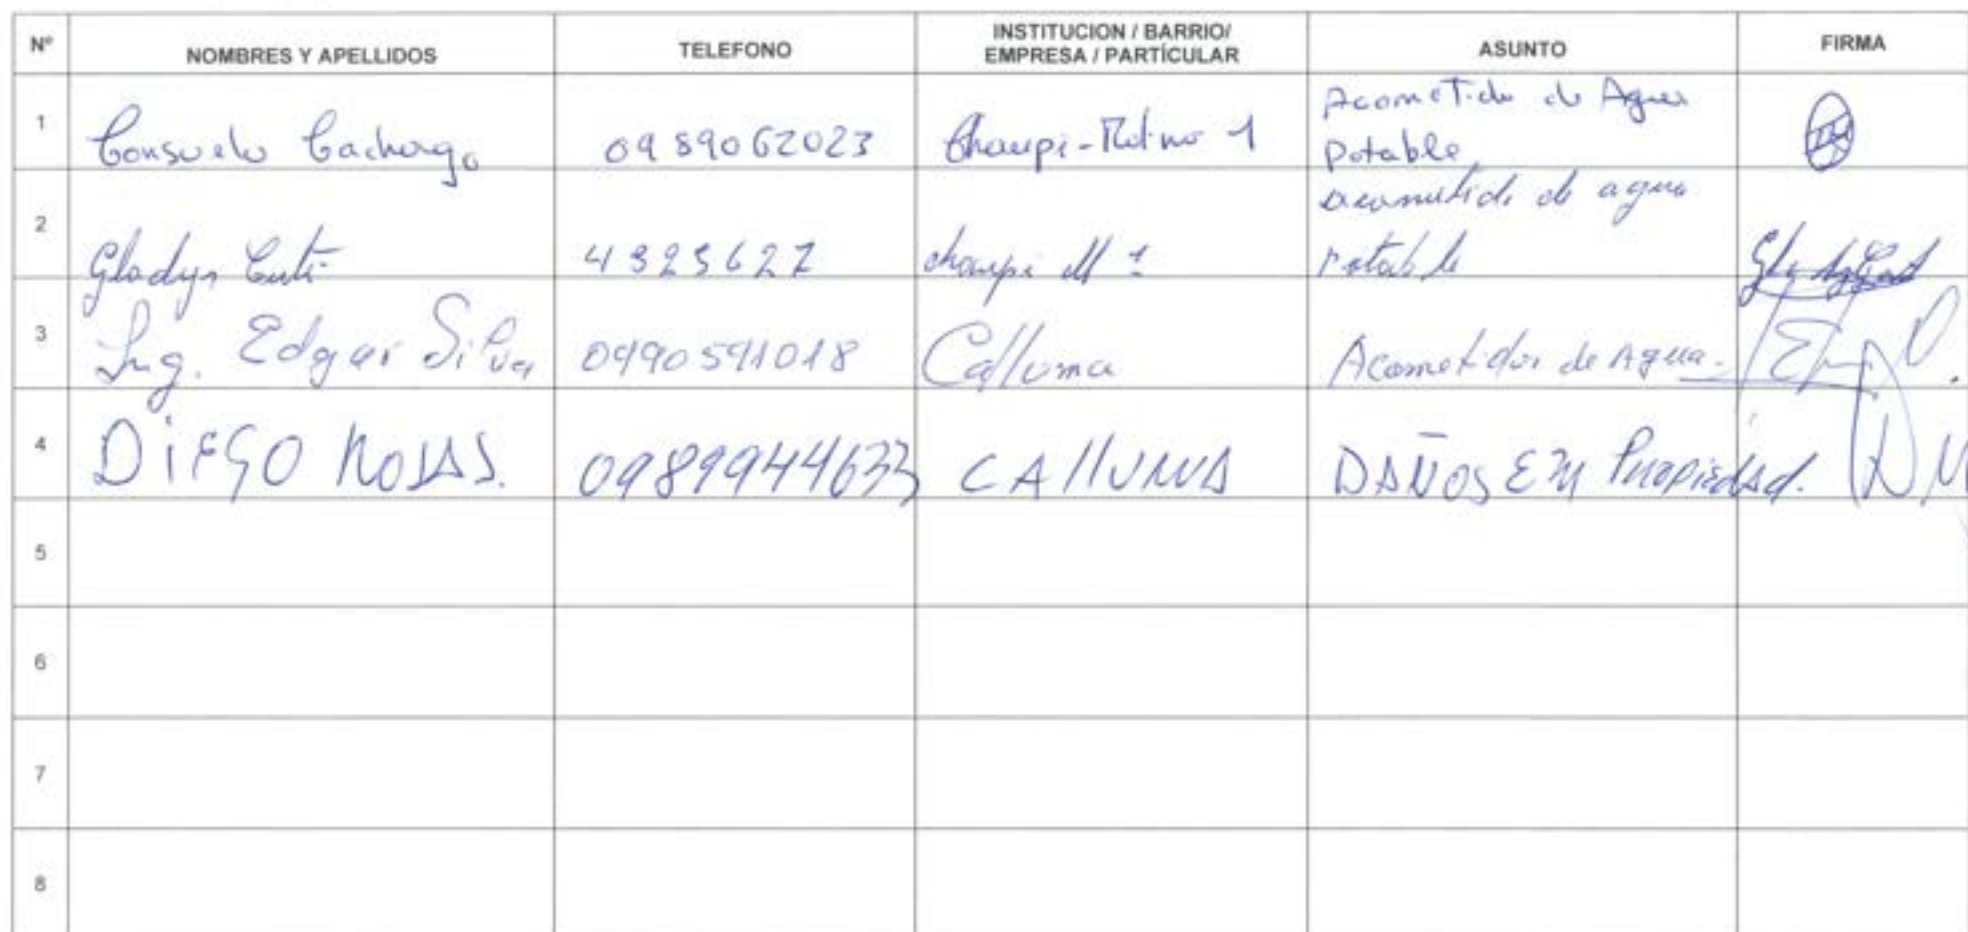 Nº NOMBRES Y APELLIDOS TELEFONO INSTITUCION / BARRIO/ EMPRESA / PARTÍCULAR ASUNTO FIRMA
1 Consuelo 0989062023 Chaupi - 1 Acometida de Agua
Potable
2 Gladys chaupi M 1 acometida de agua
potable
3 Ing. Edgar Silva 0990591018 Calluma Acometidas de Agua.
4 DIEGO ROJAS. 0989944633 CAllUMA DAÑOS EN Propiedad.
5
6
7
8